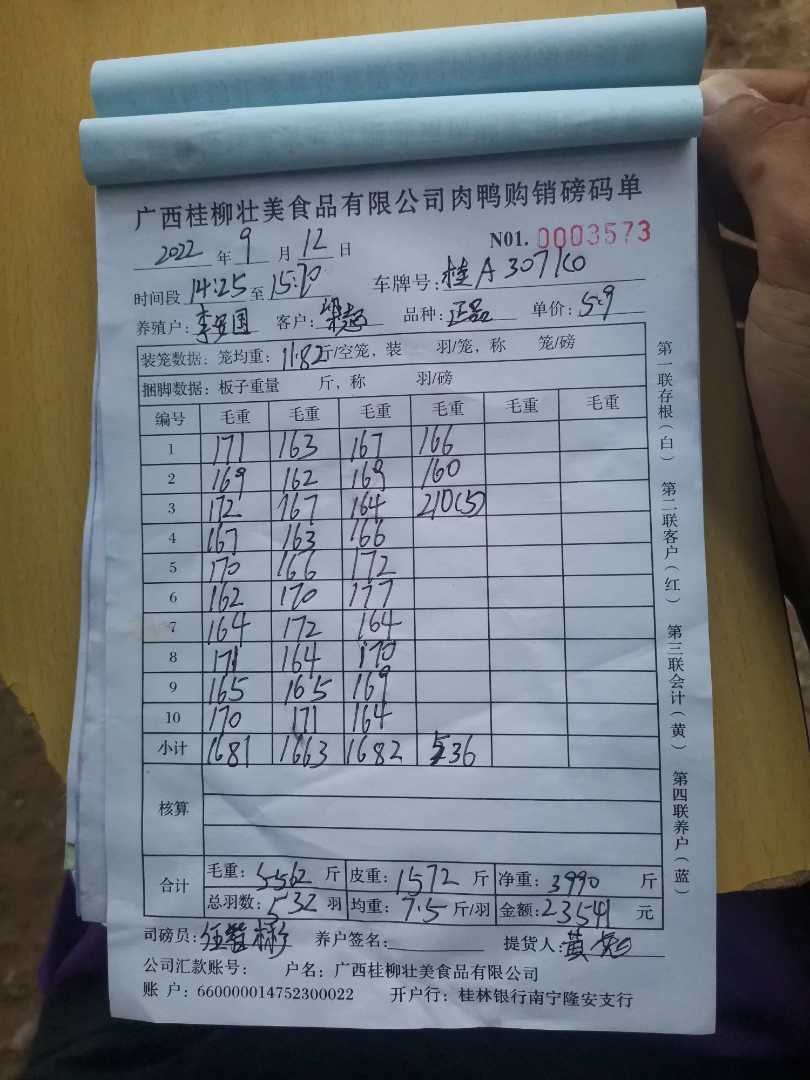 广西桂柳壮美食品有限公司肉鸭购销磅码单
2022 年 9 月 12 日 N01. 0003573
时间段 14:25 至 15:10 车牌号: 桂A 307
养殖户: 李 国 客户: 品种: 正品 单价: 5.9
装笼数据: 笼均重: 11.82 斤/空笼, 装 羽/笼, 称 笼/磅
捆脚数据: 板子重量 斤, 称 羽/磅
编号 毛重 毛重 毛重 毛重 毛重 毛重
1 171 163 167 166
2 169 162 169 160
3 172 167 164 210(5)
4 167 163 166
5 170 166 172
6 162 170 177
7 164 172 164
8 171 164 170
9 165 165 169
10 170 171 164
小计 1681 1663 1682 536
核算
合计 毛重: 5562 斤 皮重: 1572 斤 净重: 3990 斤
总羽数: 532 羽 均重: 7.5 斤/羽 金额: 23541 元
司磅员: 任 彬 养户签名: 提货人: 黄
公司汇款账号: 户名: 广西桂柳壮美食品有限公司
账 户: 660000014752300022 开户行: 桂林银行南宁隆安支行
第一联存根(白) 第二联客户(红) 第三联会计(黄) 第四联养户(蓝)